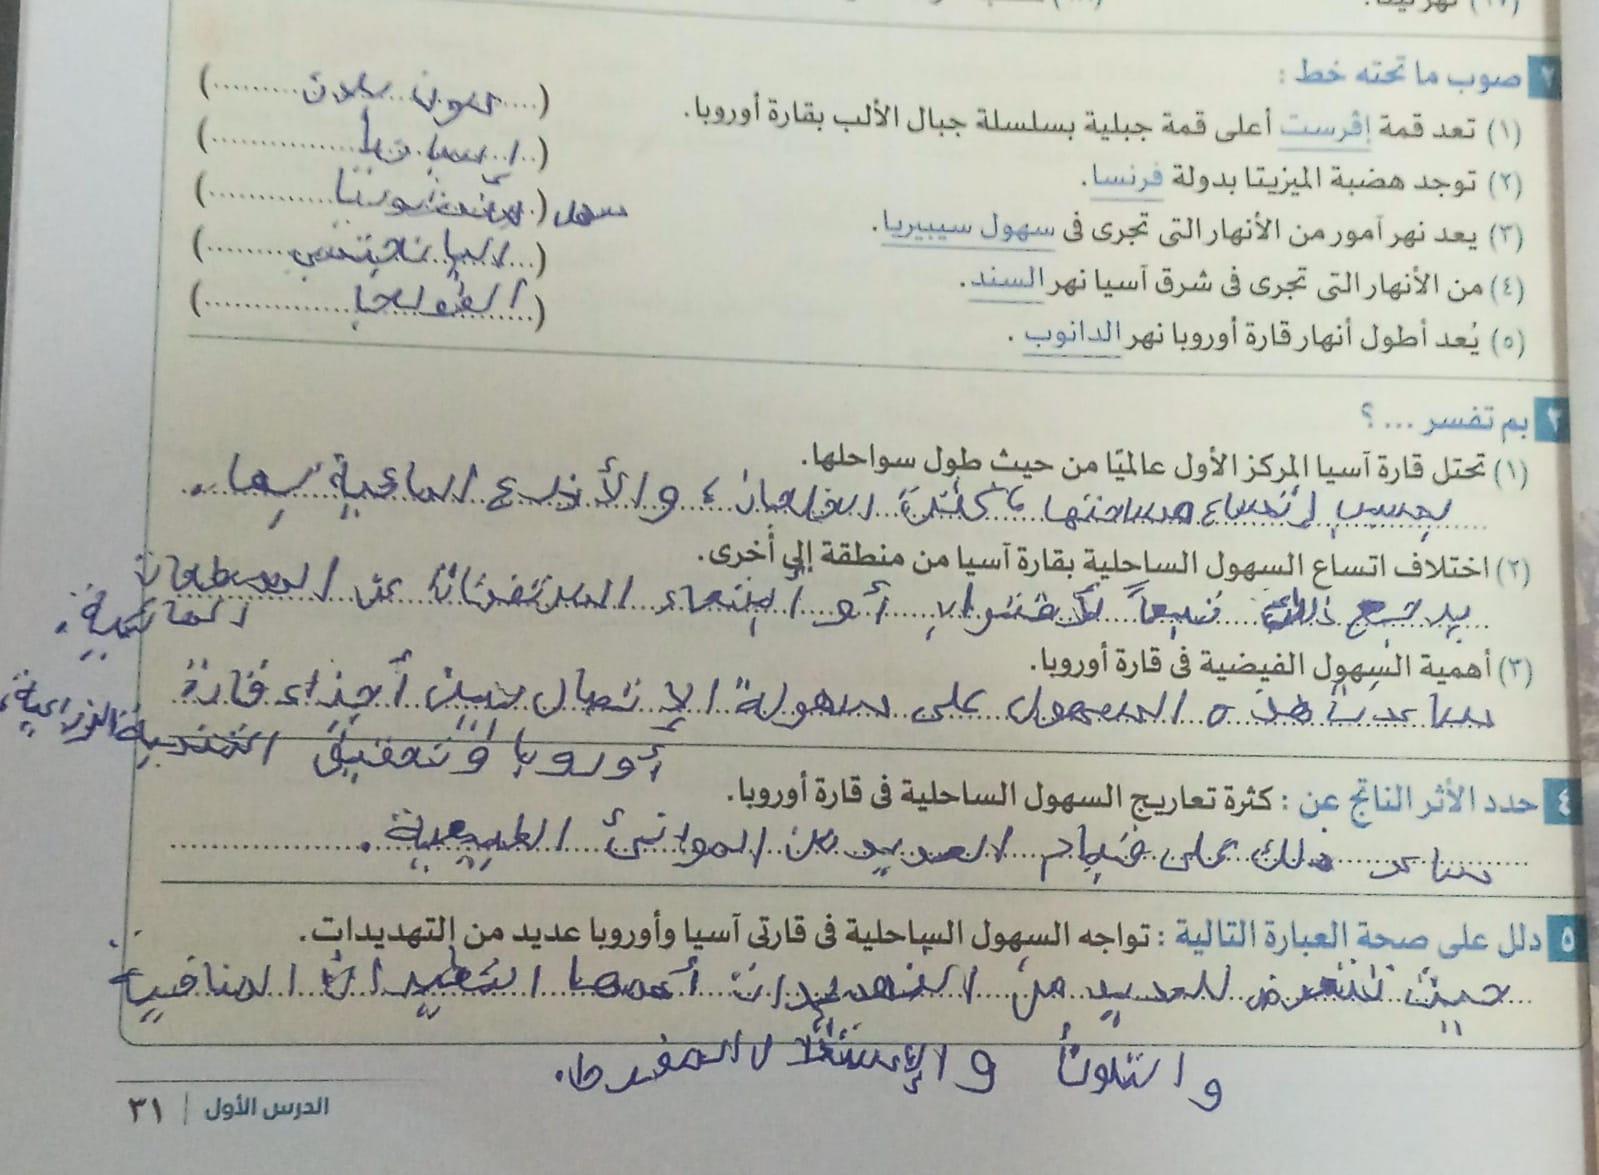 ٢ صوب ما تحته خط :
(١) تعد قمة إفرست أعلى قمة جبلية بسلسلة جبال الألب بقارة أوروبا. (مون بلان)
(٢) توجد هضبة الميزيتا بدولة فرنسا. (إسبانيا)
(٣) يعد نهر آمور من الأنهار التى تجرى فى سهول سيبيريا. (منشوريا) سهل
(٤) من الأنهار التى تجرى فى شرق آسيا نهر السند. (اليانجتسى)
(٥) يُعد أطول أنهار قارة أوروبا نهر الدانوب. (الفولجا)
٣ بم تفسر ... ؟
(١) تحتل قارة آسيا المركز الأول عالميًا من حيث طول سواحلها.
بسبب إتساع مساحتها، كثرة الخلجان، والأذرع المائية بها.
(٢) اختلاف اتساع السهول الساحلية بقارة آسيا من منطقة إلى أخرى.
يرجع ذلك تبعاً لأقتراب أو ابتعاد المرتفعات عن المسطحات
المائية.
(٣) أهمية السهول الفيضية فى قارة أوروبا.
ساعدت هذه السهول على سهولة الإتصال بين أجزاء قارة
أوروبا وتحقيق التنمية الزراعية.
٤ حدد الأثر الناتج عن : كثرة تعاريج السهول الساحلية فى قارة أوروبا.
ساعد ذلك على قيام العديد من الموانئ الطبيعية.
٥ دلل على صحة العبارة التالية : تواجه السهول الساحلية فى قارتى آسيا وأوروبا عديد من التهديدات.
حيث تتعرض للعديد من التهديدات أهمها التغيرات المناخية
والتلوث والإستغلال المفرط.
الدرس الأول | ٣١